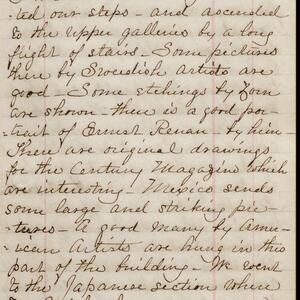 ted our steps - and ascended
to the upper galleries by a long
flight of stairs - Some pictures
here by Swedish artists are
good - Some etchings by Zorn
are shown - there is a good por-
trait of Ernest Renan - by him -
There are original drawings
for the Century Magazine which
are interesting - Mexico sends
some large and striking pic-
tures - A good many by Amer-
ican Artists are hung in this
part of the building - We went
to the Japanese section where